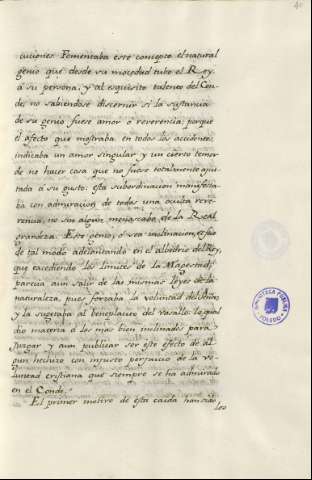 cuciones. Fomentaba este concepto el natural
genio que desde su mocedad tubo el Rey
á su persona, y al esquisito talento del Con-
de, no sabiendose discernir si la sustancia
de su genio fuese amor ó reverencia; porque
el afecto que mostraba en todos los accidentes
indicaba un amor singular y un cierto temor
de no hacer cosa que no fuese totalmente ajus-
tada á su gusto: esta subordinacion manifesta-
ba con admiracion de todos una oculta reve-
rencia, no sin algun menoscabo de la Real
grandeza. Este genio, ó sea inclinacion, se fue
de tal modo adelantando en el albedrio del Rey,
que excediendo los limites de la Magestad
parecia aun salir de las mismas leyes de la
naturaleza, pues forzaba la voluntad del
y la sugetaba al beneplacito del vasallo: lo qual
dio materia á los mas bien inclinados para
juzgar y aun publicar ser este efecto de al-
gun hechizo con susto perjuicio de la vo-
luntad cristiana que siempre se ha admirado
en el Conde.
El primer motivo de esta caida han sido
los
BIBLIOTECA PUBLICA
TOLEDO